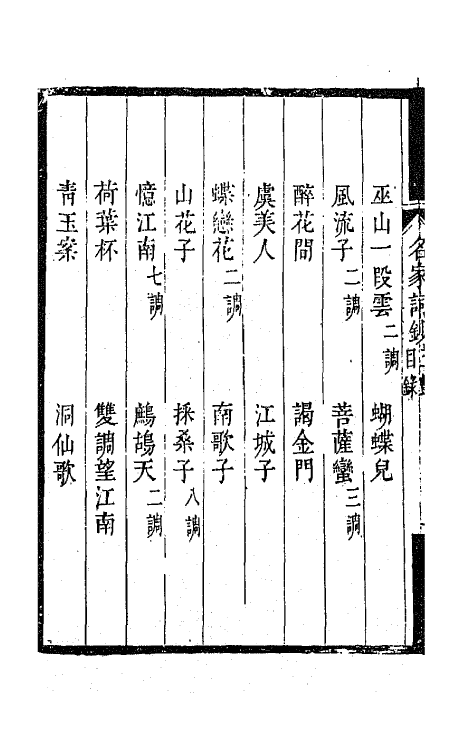 名家詞鈔 目錄
巫山一段雲二調 蝴蝶兒
風流子二調 菩薩蠻三調
醉花間 謁金門
虞美人 江城子
蝶戀花二調 南歌子
山花子 採桑子八調
憶江南七調 鷓鴣天二調
荷葉杯 雙調望江南
青玉案 洞仙歌